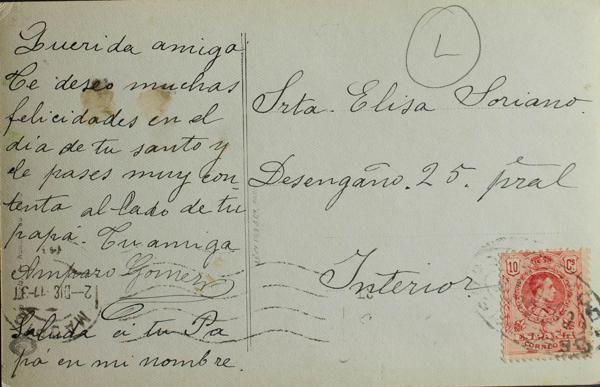 Querida amiga
Te deseo muchas
felicidades en el
día de tu santo y
le pases muy con-
tenta al lado de tu
papá. Tu amiga
Amparo Gómez
Saluda a tu Pa
pá en mi nombre.
L
Srta. Elisa Soriano.
Desengaño. 25. pral
Interior
10 Cs
CORREOS